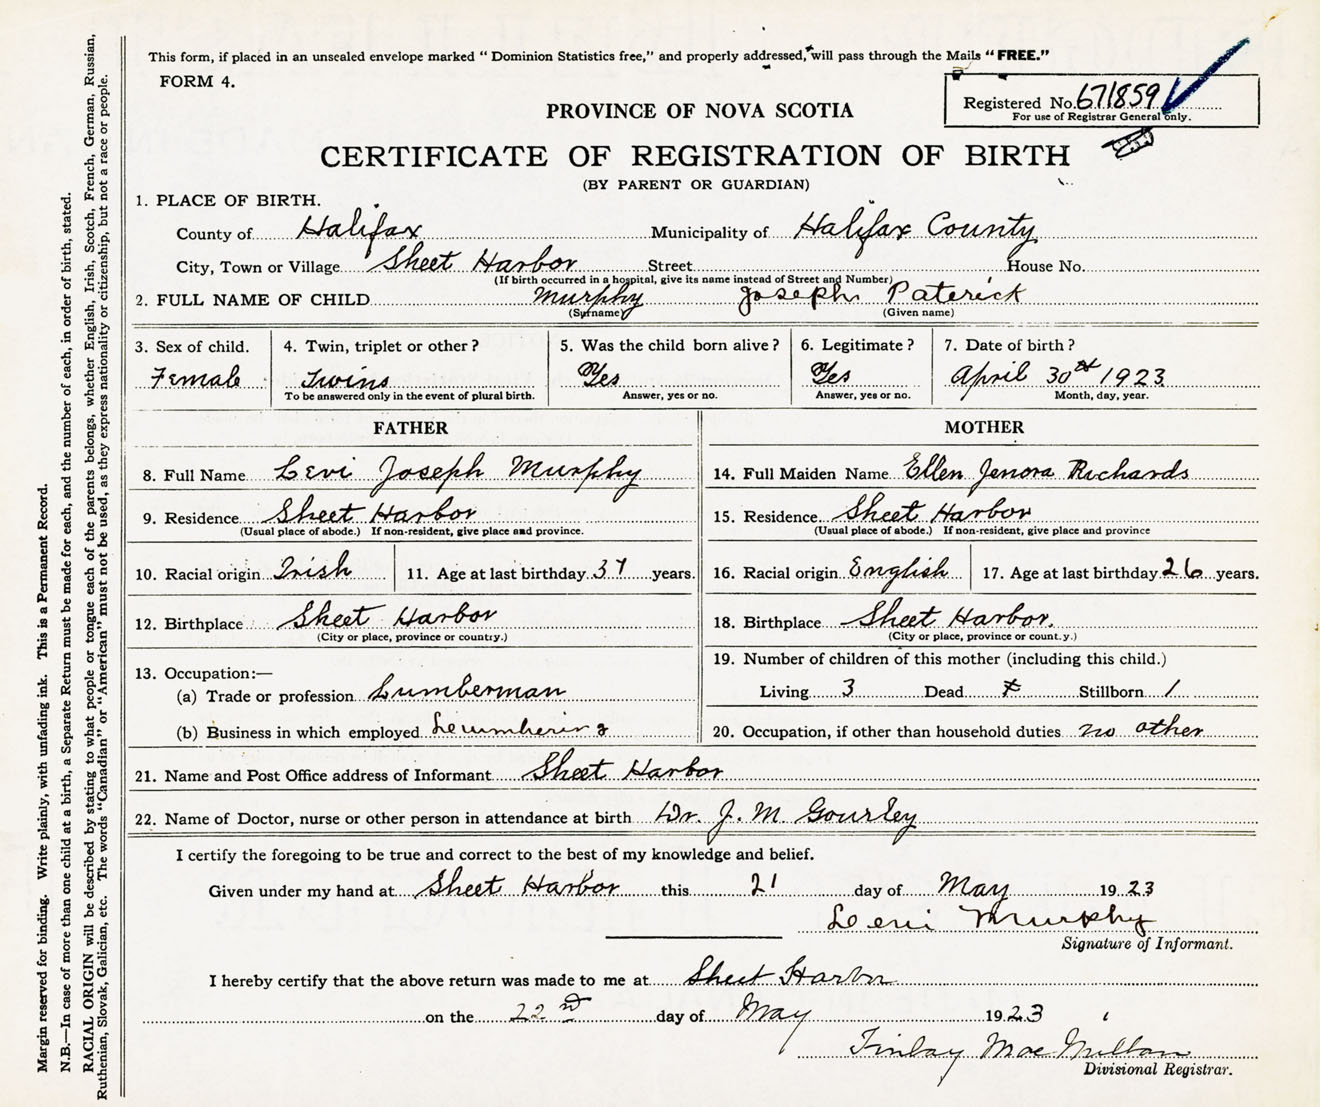 This form, if placed in an unsealed envelope marked "Dominion Statistics free," and properly addressed, will pass through the Mails "FREE."
FORM 4.
Registered No. 671859
For use of Registrar General only.
PROVINCE OF NOVA SCOTIA
CERTIFICATE OF REGISTRATION OF BIRTH
(BY PARENT OR GUARDIAN)
1. PLACE OF BIRTH.
County of Halifax Municipality of Halifax County
City, Town or Village Sheet Harbor Street House No.
(If birth occurred in a hospital, give its name instead of Street and Number)
2. FULL NAME OF CHILD Murphy Joseph Paterick
(Surname) (Given name)
3. Sex of child. 4. Twin, triplet or other? 5. Was the child born alive? 6. Legitimate? 7. Date of birth?
Female Twins Yes Yes April 30th 1923
To be answered only in the event of plural birth. Answer, yes or no. Answer, yes or no. Month, day, year.
FATHER MOTHER
8. Full Name Levi Joseph Murphy 14. Full Maiden Name Ellen Jenora Richards
9. Residence Sheet Harbor 15. Residence Sheet Harbor
(Usual place of abode.) If non-resident, give place and province. (Usual place of abode.) If non-resident, give place and province
10. Racial origin Irish 11. Age at last birthday 37 years. 16. Racial origin English 17. Age at last birthday 26 years.
12. Birthplace Sheet Harbor 18. Birthplace Sheet Harbor.
(City or place, province or country.) (City or place, province or country.)
13. Occupation:— 19. Number of children of this mother (including this child.)
(a) Trade or profession Lumberman Living 3 Dead Stillborn 1
(b) Business in which employed Leumbering 20. Occupation, if other than household duties no other
21. Name and Post Office address of Informant Sheet Harbor
22. Name of Doctor, nurse or other person in attendance at birth Dr. J. M. Gourley
I certify the foregoing to be true and correct to the best of my knowledge and belief.
Given under my hand at Sheet Harbor this 21 day of May 1923
Levi Murphy
Signature of Informant.
I hereby certify that the above return was made to me at Sheet Harbor
on the 22nd day of May 1923
Finlay MacMillan
Divisional Registrar.
Margin reserved for binding. Write plainly, with unfading ink. This is a Permanent Record.
N.B.—In case of more than one child at a birth, a Separate Return must be made for each, and the number of each, in order of birth, stated.
RACIAL ORIGIN will be described by stating to what people or tongue each of the parents belongs, whether English, Irish, Scotch, French, German, Russian,
Ruthenian, Slovak, Galician, etc. The words "Canadian" or "American" must not be used, as they express nationality or citizenship, but not a race or people.